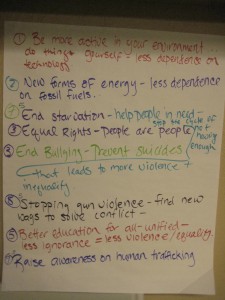 ① Be more active in your environment...
do things yourself = less dependence on
technology
② New forms of energy - less dependence
on fossil fuels...
⑦ End starvation - help people in need -
stop the cycle of
not
having
enough
③ Equal Rights - People are people
④ End Bullying - Prevent suicides
that leads to more violence +
inequality
⑥ Stopping gun violence - find new
ways to solve conflict -
⑤ Better education for all - unified -
less ignorance = less violence/equality
Raise awareness on human trafficking